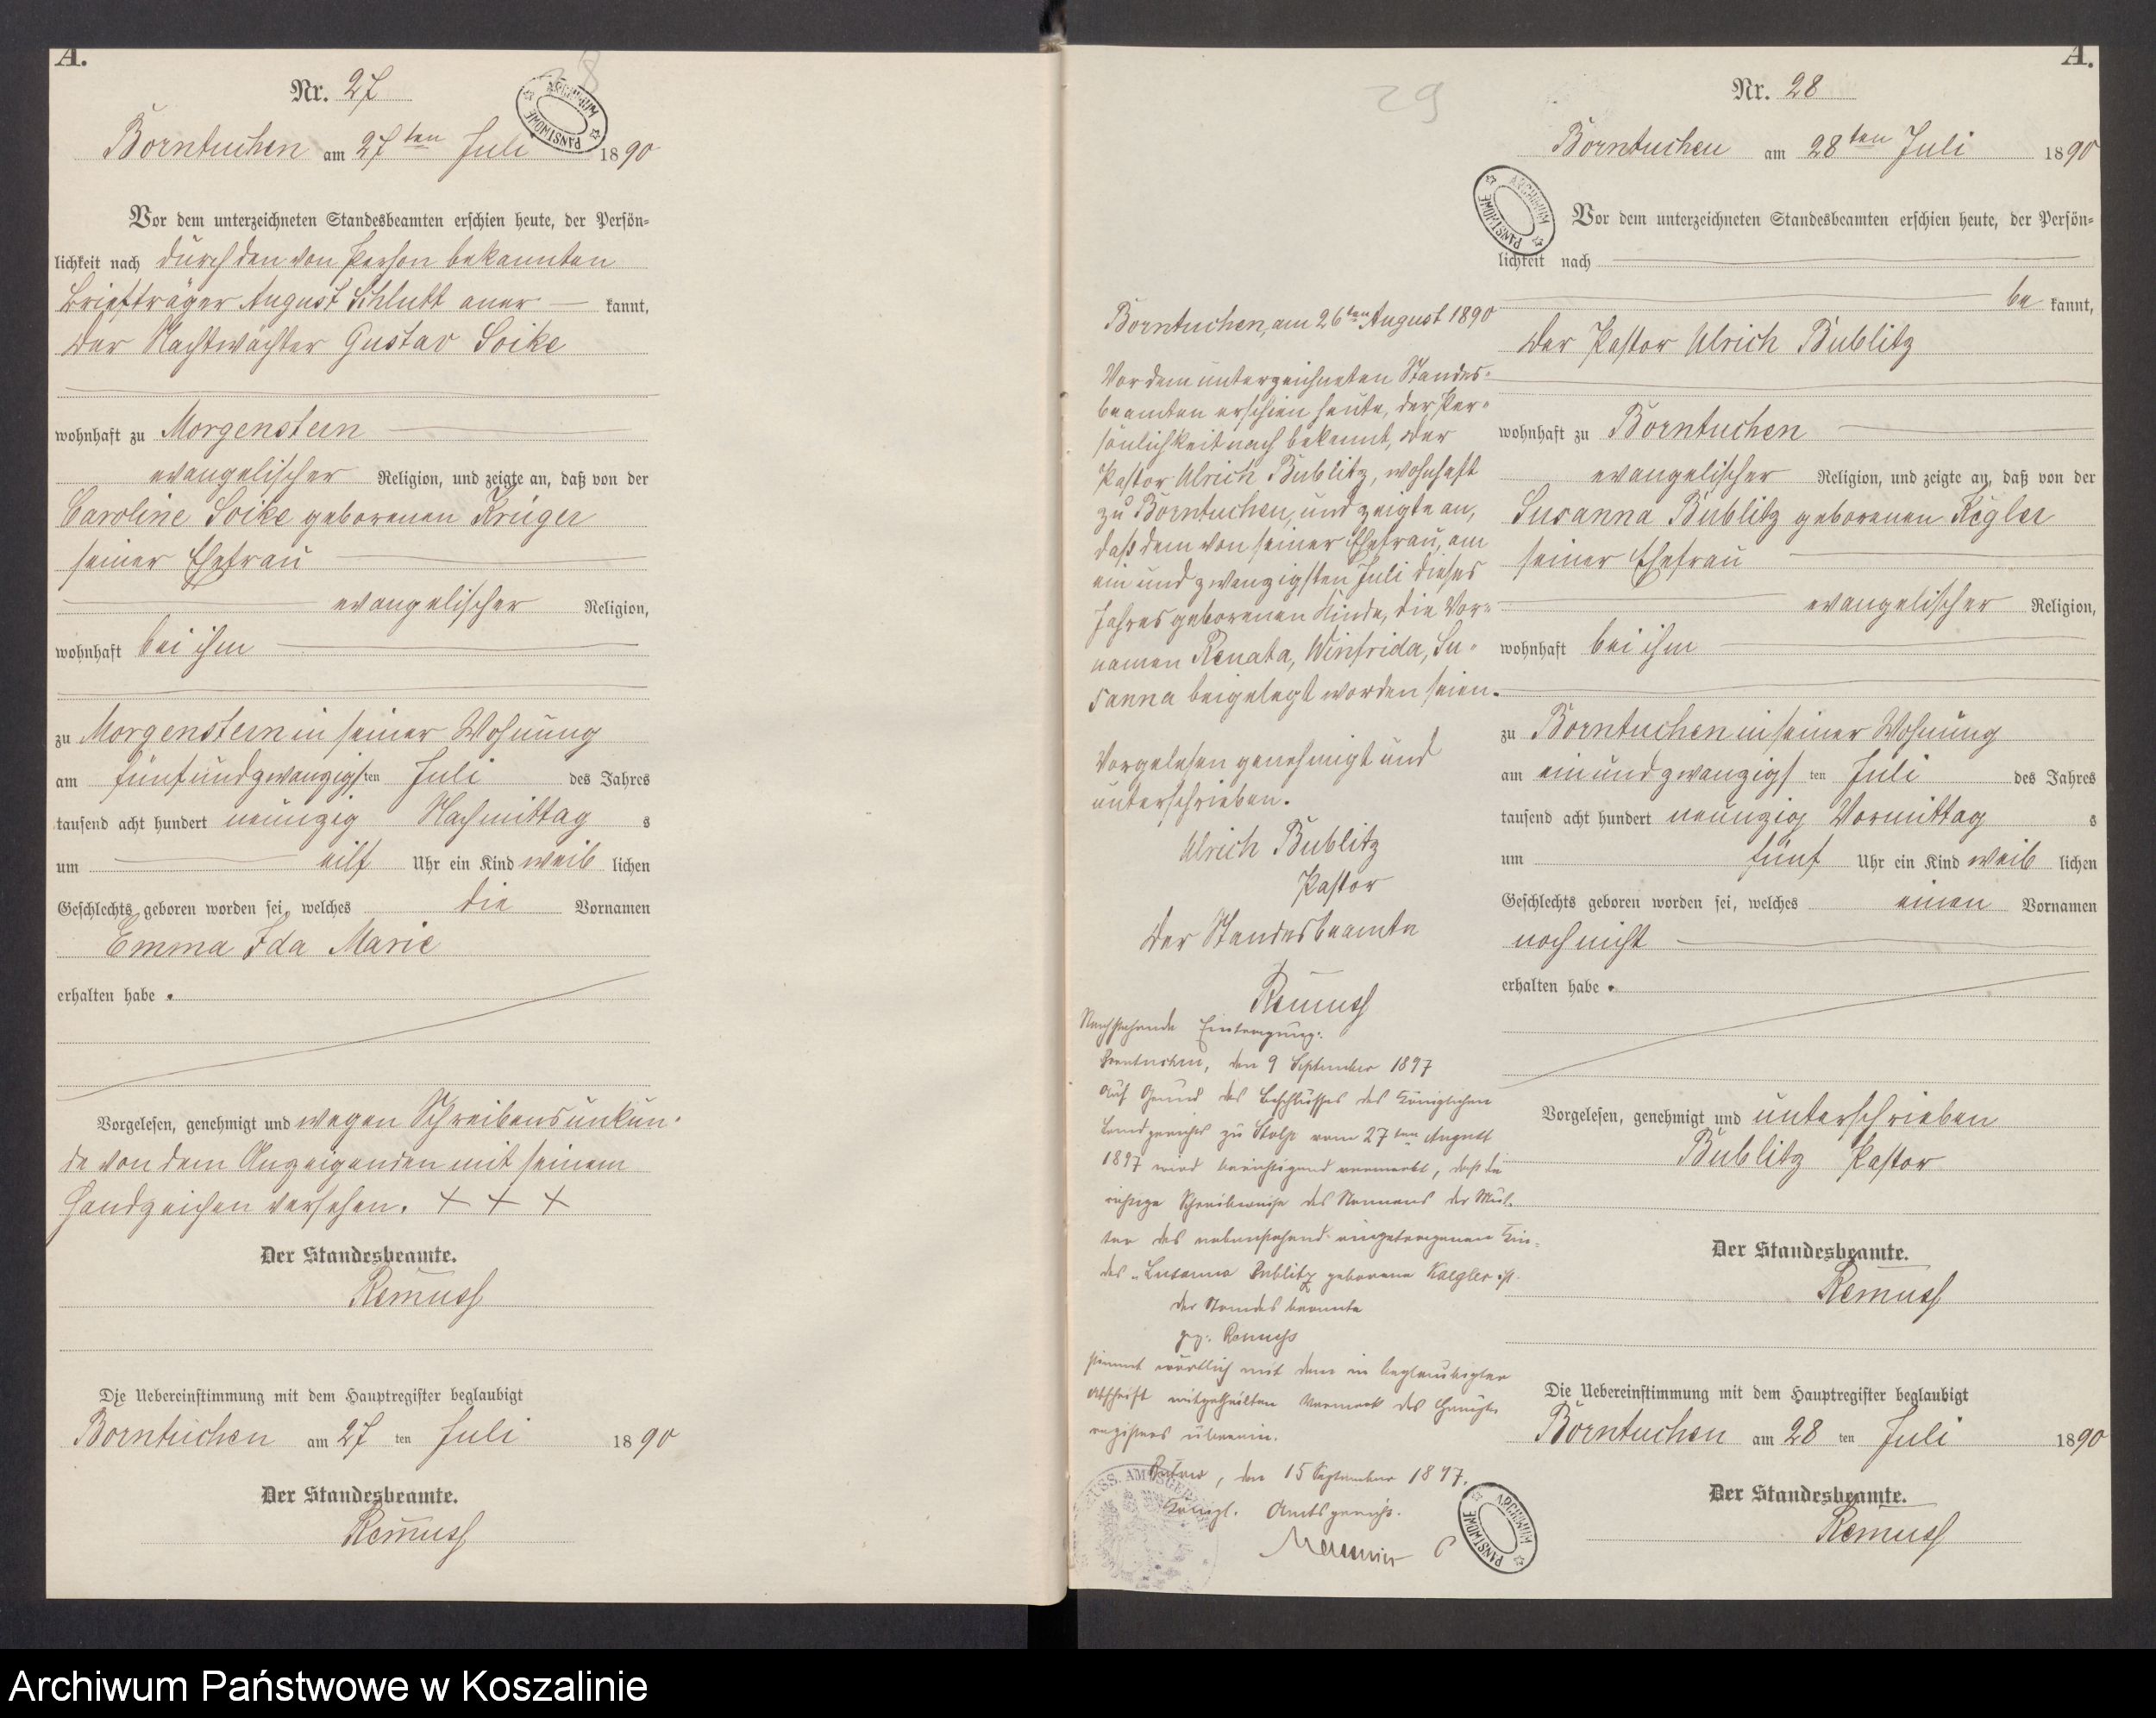 A.
Nr. 27
28
ARCHIWUM PAŃSTWOWE
Borntuchen am 27ten Juli 1890
Vor dem unterzeichneten Standesbeamten erschien heute, der Persön-
lichkeit nach durch den von Person bekannten
Briefträger August Schlutt aner — kannt,
der Nachtwächter Gustav Soike
wohnhaft zu Morgenstern
evangelischer Religion, und zeigte an, daß von der
Caroline Soike geborenen Krüger
seiner Ehefrau
evangelischer Religion,
wohnhaft bei ihm
zu Morgenstern in seiner Wohnung
am fünfundzwanzigsten Juli des Jahres
tausend acht hundert neunzig Nachmittag s
um eilf Uhr ein Kind weib lichen
Geschlechts geboren worden sei, welches die Vornamen
Emma Ida Marie
erhalten habe.
Vorgelesen, genehmigt und wegen Schreibensunkun-
de von dem Anzeigenden mit seinem
Handzeichen versehen. + + +
Der Standesbeamte.
Remuss
Die Uebereinstimmung mit dem Hauptregister beglaubigt
Borntuchen am 27 ten Juli 1890
Der Standesbeamte.
Remuss
29
Borntuchen, am 26ten August 1890
Vor dem unterzeichneten Standes-
beamten erschien heute, der Per-
sönlichkeit nach bekannt, der
Pastor Ulrich Bublitz, wohnhaft
zu Borntuchen, und zeigte an,
daß dem von seiner Ehefrau, am
ein und zwanzigsten Juli dieses
Jahres geborenen Kinde, die Vor-
namen Renata, Winfrida, Su-
sanna beigelegt worden seien.
Vorgelesen genehmigt und
unterschrieben.
Ulrich Bublitz
Pastor
Der Standesbeamte
Remuss
Nachstehende Eintragung:
Borntuchen, den 9 September 1897
Auf Grund des Beschlusses des Königlichen
Landgerichts zu Stolp vom 27ten August
1897 wird berichtigend vermerkt, daß die
richtige Schreibweise des Namens der Mut-
ter des nebenstehend eingetragenen Kin-
des "Susanna Bublitz geborene Kaegler ist.
Der Standesbeamte
gez: Remuss
stimmt wörtlich mit dem in beglaubigter
Abschrift mitgetheilten Vermerk des Haupt-
registers überein.
Bütow, den 15 September 1897.
Königl. Amtsgericht.
ARCHIWUM PAŃSTWOWE
A.
Nr. 28
Borntuchen am 28ten Juli 1890
ARCHIWUM PAŃSTWOWE
Vor dem unterzeichneten Standesbeamten erschien heute, der Persön-
lichkeit nach
be kannt,
der Pastor Ulrich Bublitz
wohnhaft zu Borntuchen
evangelischer Religion, und zeigte an, daß von der
Susanna Bublitz geborenen Kegler
seiner Ehefrau
evangelischer Religion,
wohnhaft bei ihm
zu Borntuchen in seiner Wohnung
am ein und zwanzigs ten Juli des Jahres
tausend acht hundert neunzig Vormittag s
um fünf Uhr ein Kind weib lichen
Geschlechts geboren worden sei, welches einen Vornamen
noch nicht
erhalten habe.
Vorgelesen, genehmigt und unterschrieben
Bublitz Pastor
Der Standesbeamte.
Remuss
Die Uebereinstimmung mit dem Hauptregister beglaubigt
Borntuchen am 28 ten Juli 1890
Der Standesbeamte.
Remuss
Archiwum Państwowe w Koszalinie